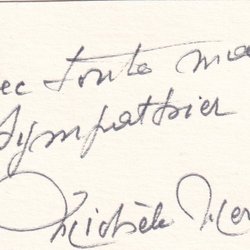 ec toute ma
sympathie
Michèle Mer